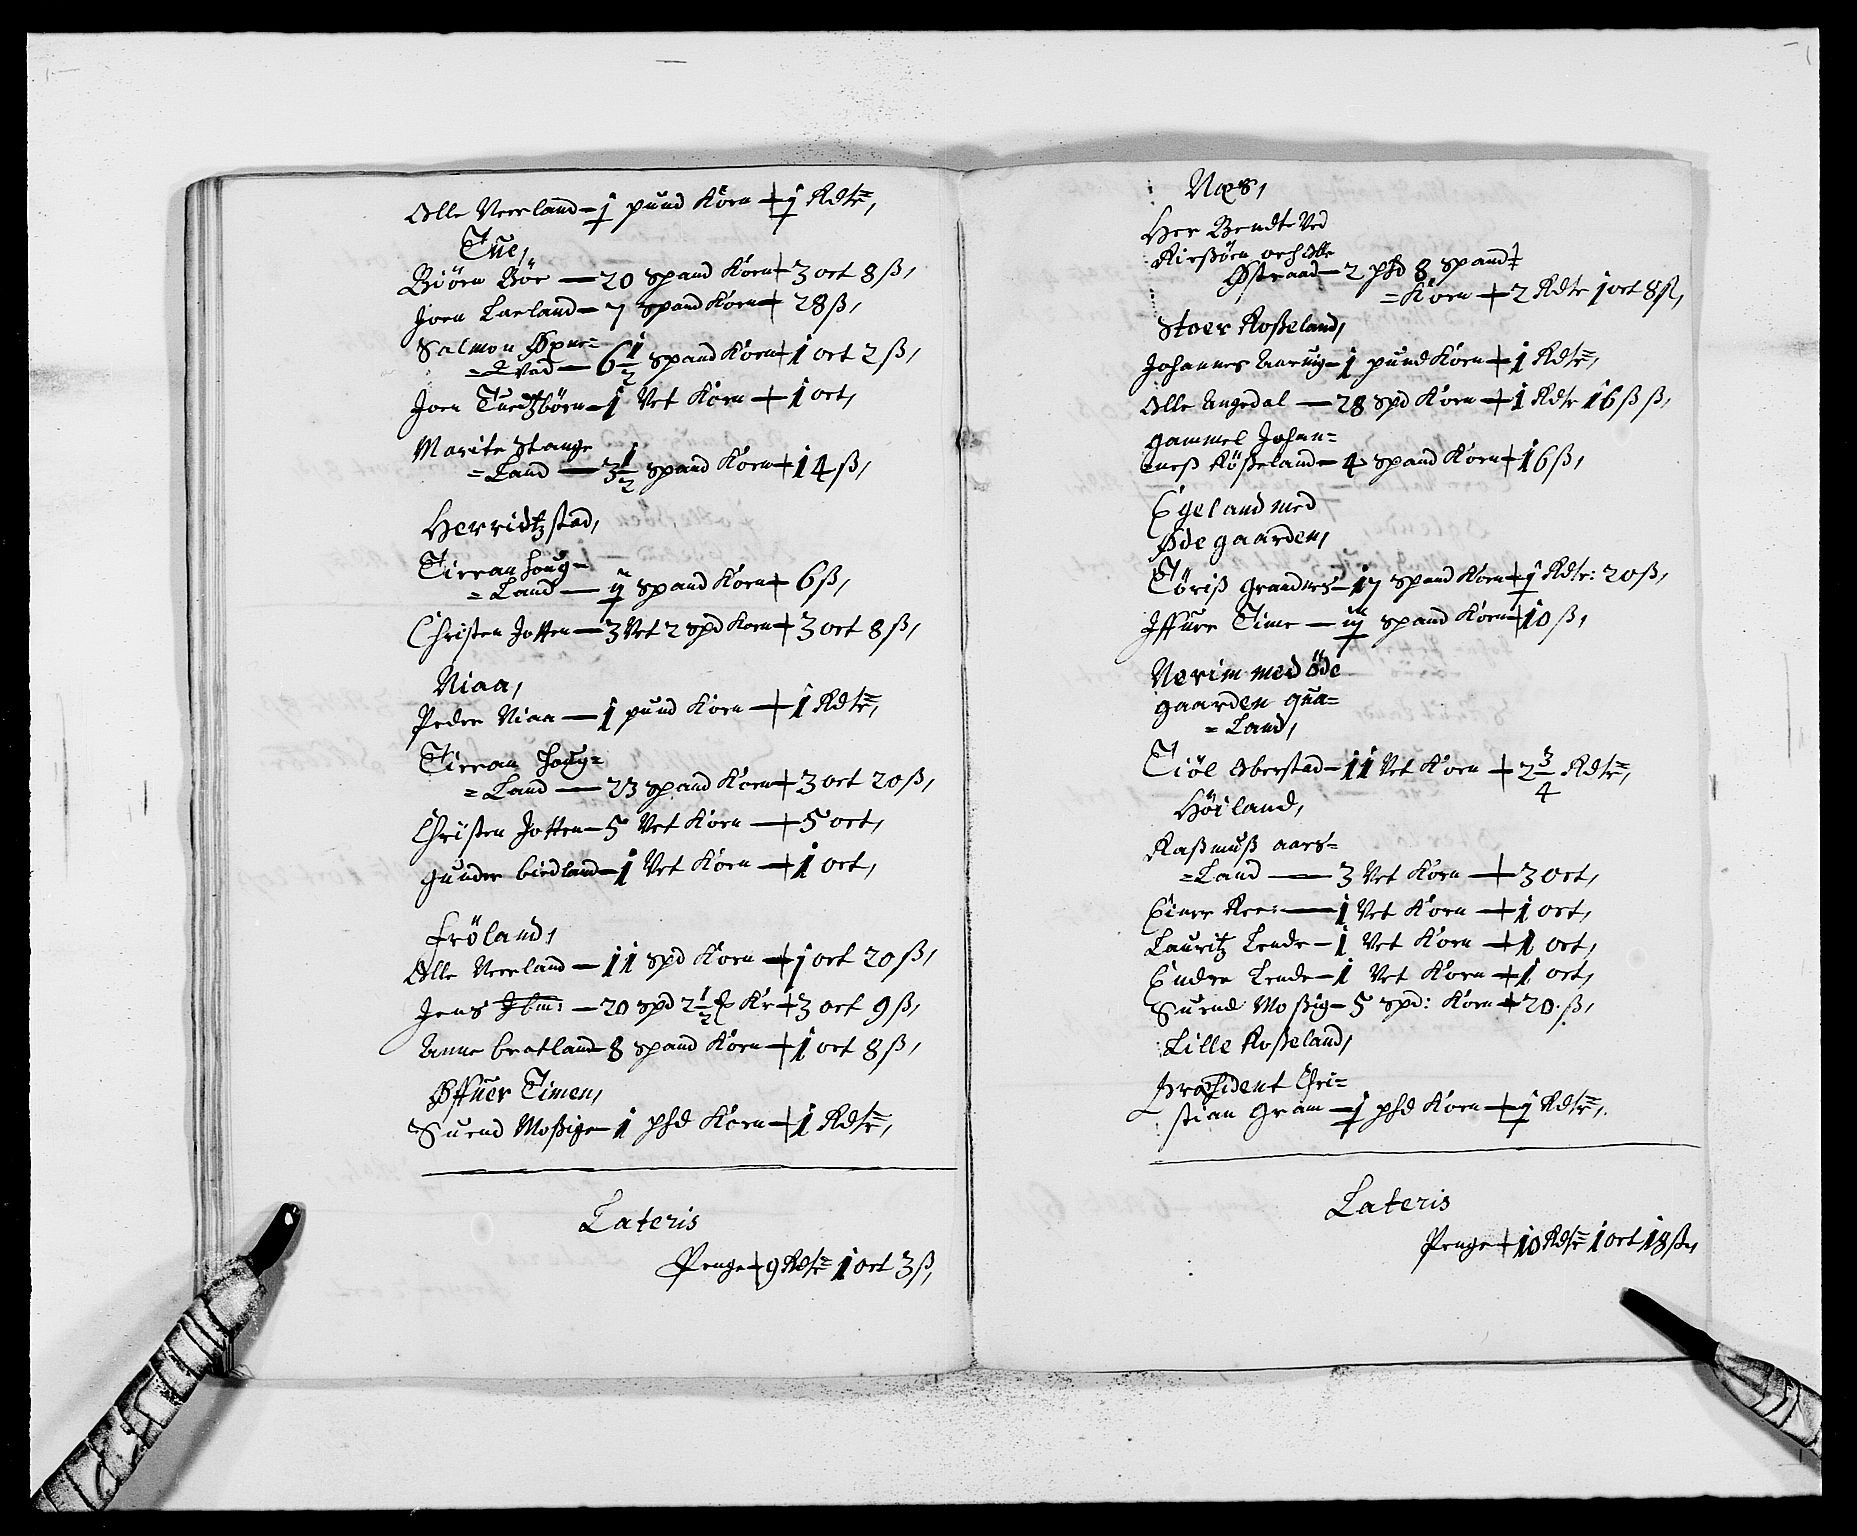 Olle Neerland – 1 pund Korn + 1 Rdlr,
Tue,
Biörn Bör — 20 spand Korn + 3 ort 8 ß,
Joen Laeland – 7 spand Korn + 28 ß,
Salmon
= Vad — 6 1/2 spand Korn + 1 ort 2 ß,
Joen – 1 Vet Korn + 1 ort,
Marite Stange
= Land — 3 1/2 spand Korn + 14 ß,
Herridtzstad,
Tieran Houg=
= Land — ij spand Korn + 6 ß,
Christen Jotten – 3 Vet 2 spd Korn + 3 ort 8 ß,
Niaa,
Peder Niaa — 1 pund Korn + 1 Rdlr,
Tieran Houg=
= Land — 23 spand Korn + 3 ort 20 ß,
Christen Jotten – 5 Vet Korn + 5 ort,
Gunder – 1 Vet Korn + 1 ort,
Fröland,
Olle Neerland – 11 spd Korn + 1 ort 20 ß,
Jens – 20 spd 2 1/2 Kr + 3 ort 9 ß,
Anne bratland 8 spand Korn + 1 ort 8 ß,
Øffuer Timen,
Suend Moßige – 1 pd Korn + 1 Rdlr,
Lateris
Penge + 9 Rdlr 1 ort 3 ß,
Næs,
Her Bendt Ved
Kirßörn och Olle
Østraad – 2 pd 8 spand
= Korn + 2 Rdlr 1 ort 8 ß,
Stoer Roßeland,
Johannes Aarug – 1 pund Korn + 1 Rdlr,
Olle Angedal — 28 spd Korn + 1 Rdlr 16 ß ß,
Gammel Johan=
neß Rößeland – 4 spand Korn + 16 ß,
Egeland med
Øde gaarden,
Töriß Grandnes – 17 spand Korn + 1 Rdlr: 20 ß,
Iffuer Time – iij spand Korn + 10 ß,
Nerim med öde
gaarden qua=
= Land,
Tiöl Oberstad – 11 Vet Korn + 2 3/4 Rdlr,
Höiland,
Raßmuß aars=
= Land — 3 Vet Korn + 3 ort,
Einer Ree: — 1 Vet Korn + 1 ort,
Lauritz Lende – 1 Vet Korn + 1 ort,
Endre Lende – 1 Vet Korn + 1 ort,
Suend Moßig – 5 spd: Korn + 20 ß,
Lille Roßeland,
Præsident Chri=
stian Gram – 1 pd Korn + 1 Rdlr,
Lateris
Penge + 10 Rdlr 1 ort 18 ß,